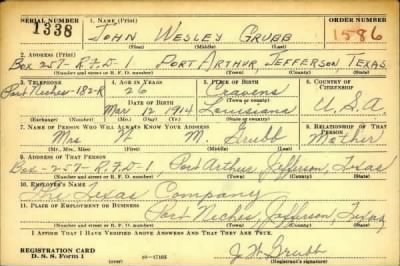 SERIAL NUMBER 1. NAME (Print) ORDER NUMBER
1338 JOHN WESLEY GRUBB 1586
(First) (Middle) (Last)
2. ADDRESS (Print)
Box 257-R.F.D-1, PORT ARTHUR, JEFFERSON TEXAS
(Number and street or R. F. D. number) (Town) (County) (State)
3. TELEPHONE 4. AGE IN YEARS 5. PLACE OF BIRTH 6. COUNTRY OF CITIZENSHIP
Port Neches-182-R 26 Cravens
DATE OF BIRTH
Mar 12 1914 Louisiana U.S.A.
(Exchange) (Number) (Mo.) (Day) (Yr.) (State or country)
7. NAME OF PERSON WHO WILL ALWAYS KNOW YOUR ADDRESS 8. RELATIONSHIP OF THAT PERSON
Mrs W M. Grubb Mother
(Mr., Mrs., Miss) (First) (Middle) (Last)
9. ADDRESS OF THAT PERSON
Box-257-R.F.D-1, Port Arthur, Jefferson, Texas
(Number and street or R. F. D. number) (Town) (County) (State)
10. EMPLOYER'S NAME
The Texas Company
11. PLACE OF EMPLOYMENT OR BUSINESS
Port Neches, Jefferson, Texas
(Number and street or R. F. D. number) (Town) (County) (State)
I AFFIRM THAT I HAVE VERIFIED ABOVE ANSWERS AND THAT THEY ARE TRUE.
REGISTRATION CARD
D. S. S. Form 1 J W Grubb
(Registrant's signature)